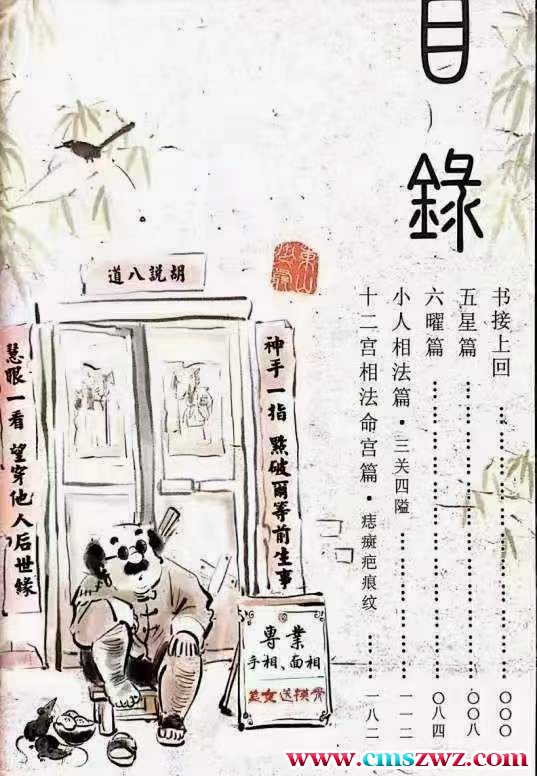 目錄
书接上回……〇〇〇
五星篇……〇〇八
六曜篇……〇八四
小人相法篇·三关四隘……一一二
十二宫相法命宫篇·痣癍疤痕纹……一八二
胡説八道
神手一指 點破爾等前生事
慧眼一看 望穿他人后世緣
專業
手相、面相
美女送摸骨
www.cmszwz.com